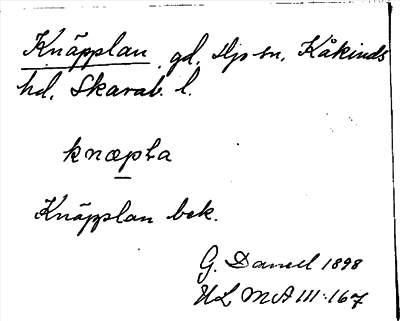 Knäpplan, gd, Hjo sn, Kåkinds
hd, Skarab. l.
knæpla
Knäpplan bek.
G. Danell 1898
ULMA 111:167